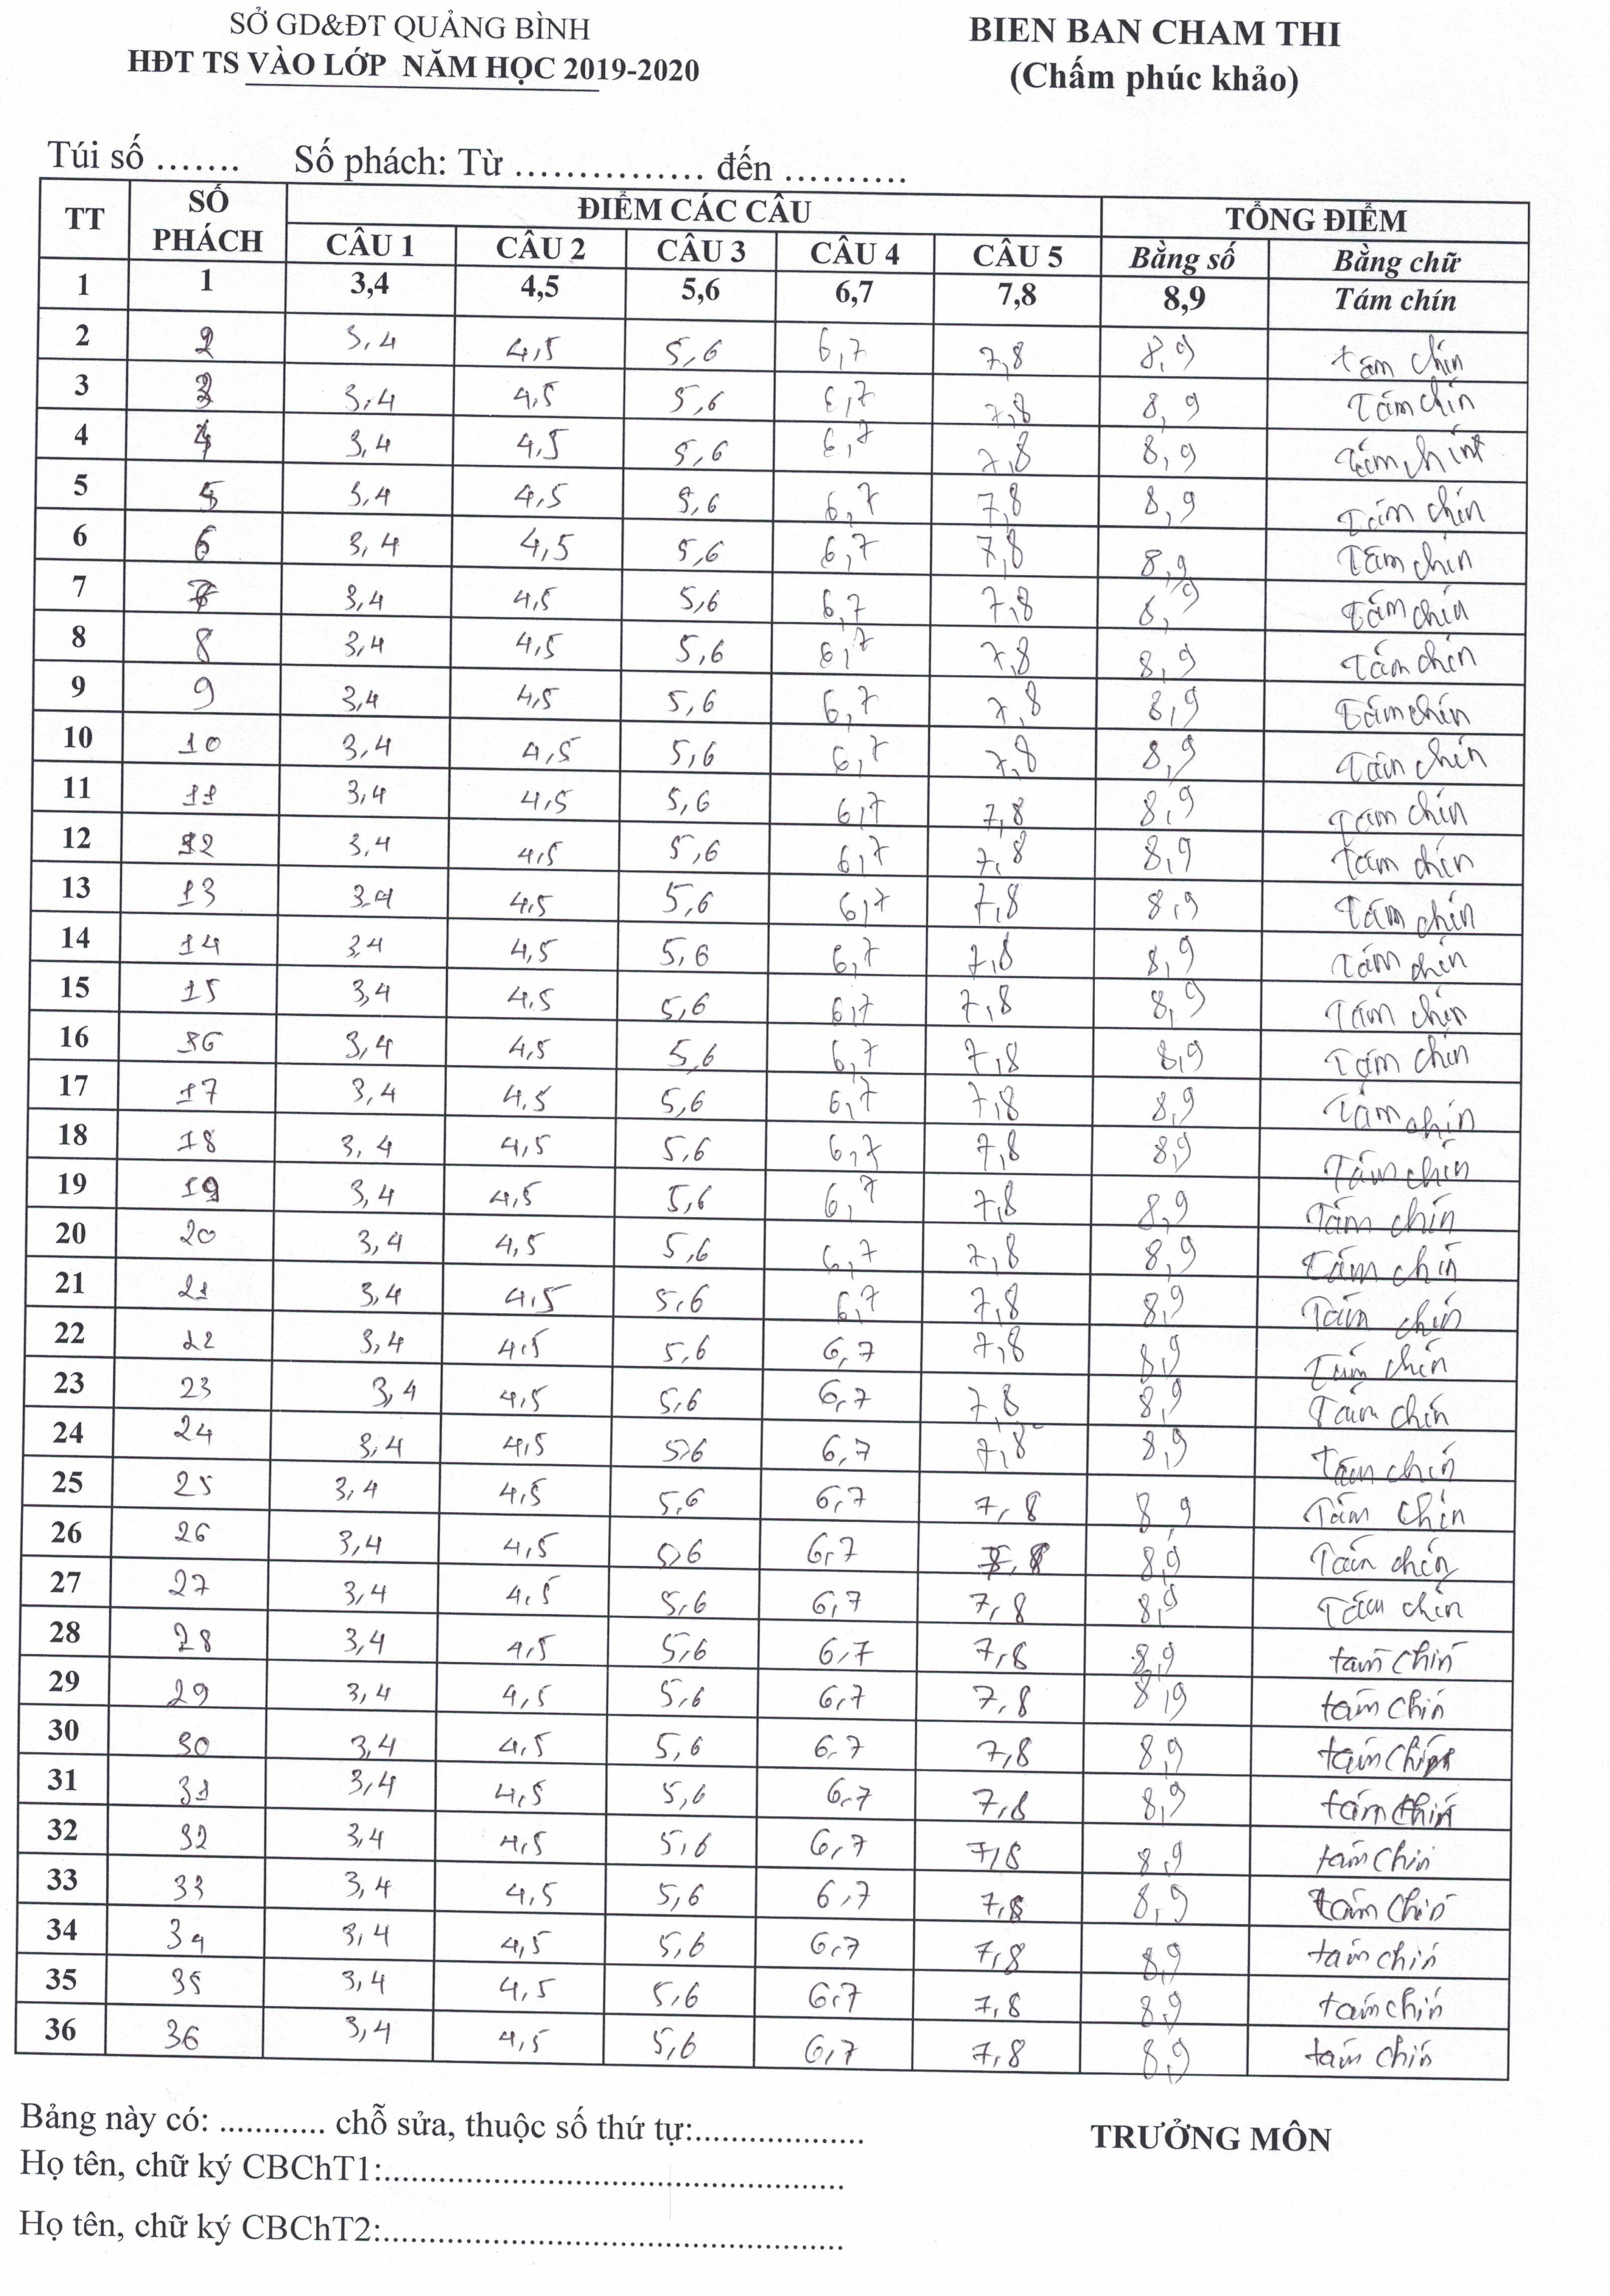 SỞ GD&ĐT QUẢNG BÌNH
HĐT TS VÀO LỚP NĂM HỌC 2019-2020
BIEN BAN CHAM THI
(Chấm phúc khảo)
Túi số ....... Số phách: Từ ............... đến ..........
TT SỐ PHÁCH ĐIỂM CÁC CÂU TỔNG ĐIỂM
CÂU 1 CÂU 2 CÂU 3 CÂU 4 CÂU 5 Bằng số Bằng chữ
1 1 3,4 4,5 5,6 6,7 7,8 8,9 Tám chín
2 2 3,4 4,5 5,6 6,7 7,8 8,9 tám chín
3 3 3,4 4,5 5,6 6,7 7,8 8,9 Tám chín
4 4 3,4 4,5 5,6 6,7 7,8 8,9 Tám chín
5 5 3,4 4,5 5,6 6,7 7,8 8,9 Tám chín
6 6 3,4 4,5 5,6 6,7 7,8 8,9 Tám chín
7 7 3,4 4,5 5,6 6,7 7,8 8,9 Tám chín
8 8 3,4 4,5 5,6 6,7 7,8 8,9 Tám chín
9 9 3,4 4,5 5,6 6,7 7,8 8,9 Tám chín
10 10 3,4 4,5 5,6 6,7 7,8 8,9 Tám chín
11 11 3,4 4,5 5,6 6,7 7,8 8,9 Tám chín
12 12 3,4 4,5 5,6 6,7 7,8 8,9 Tám chín
13 13 3,4 4,5 5,6 6,7 7,8 8,9 Tám chín
14 14 3,4 4,5 5,6 6,7 7,8 8,9 Tám chín
15 15 3,4 4,5 5,6 6,7 7,8 8,9 Tám chín
16 16 3,4 4,5 5,6 6,7 7,8 8,9 Tám chín
17 17 3,4 4,5 5,6 6,7 7,8 8,9 Tám chín
18 18 3,4 4,5 5,6 6,7 7,8 8,9 Tám chín
19 19 3,4 4,5 5,6 6,7 7,8 8,9 Tám chín
20 20 3,4 4,5 5,6 6,7 7,8 8,9 Tám chín
21 21 3,4 4,5 5,6 6,7 7,8 8,9 Tám chín
22 22 3,4 4,5 5,6 6,7 7,8 8,9 Tám chín
23 23 3,4 4,5 5,6 6,7 7,8 8,9 Tám chín
24 24 3,4 4,5 5,6 6,7 7,8 8,9 Tám chín
25 25 3,4 4,5 5,6 6,7 7,8 8,9 Tám chín
26 26 3,4 4,5 5,6 6,7 7,8 8,9 Tám chín
27 27 3,4 4,5 5,6 6,7 7,8 8,9 Tám chín
28 28 3,4 4,5 5,6 6,7 7,8 8,9 tám chín
29 29 3,4 4,5 5,6 6,7 7,8 8,9 tám chín
30 30 3,4 4,5 5,6 6,7 7,8 8,9 tám chín
31 31 3,4 4,5 5,6 6,7 7,8 8,9 tám chín
32 32 3,4 4,5 5,6 6,7 7,8 8,9 tám chín
33 33 3,4 4,5 5,6 6,7 7,8 8,9 tám chín
34 34 3,4 4,5 5,6 6,7 7,8 8,9 tám chín
35 35 3,4 4,5 5,6 6,7 7,8 8,9 tám chín
36 36 3,4 4,5 5,6 6,7 7,8 8,9 tám chín
Bảng này có: ............ chỗ sửa, thuộc số thứ tự:...................
TRƯỞNG MÔN
Họ tên, chữ ký CBChT1:..................................................
Họ tên, chữ ký CBChT2:..................................................